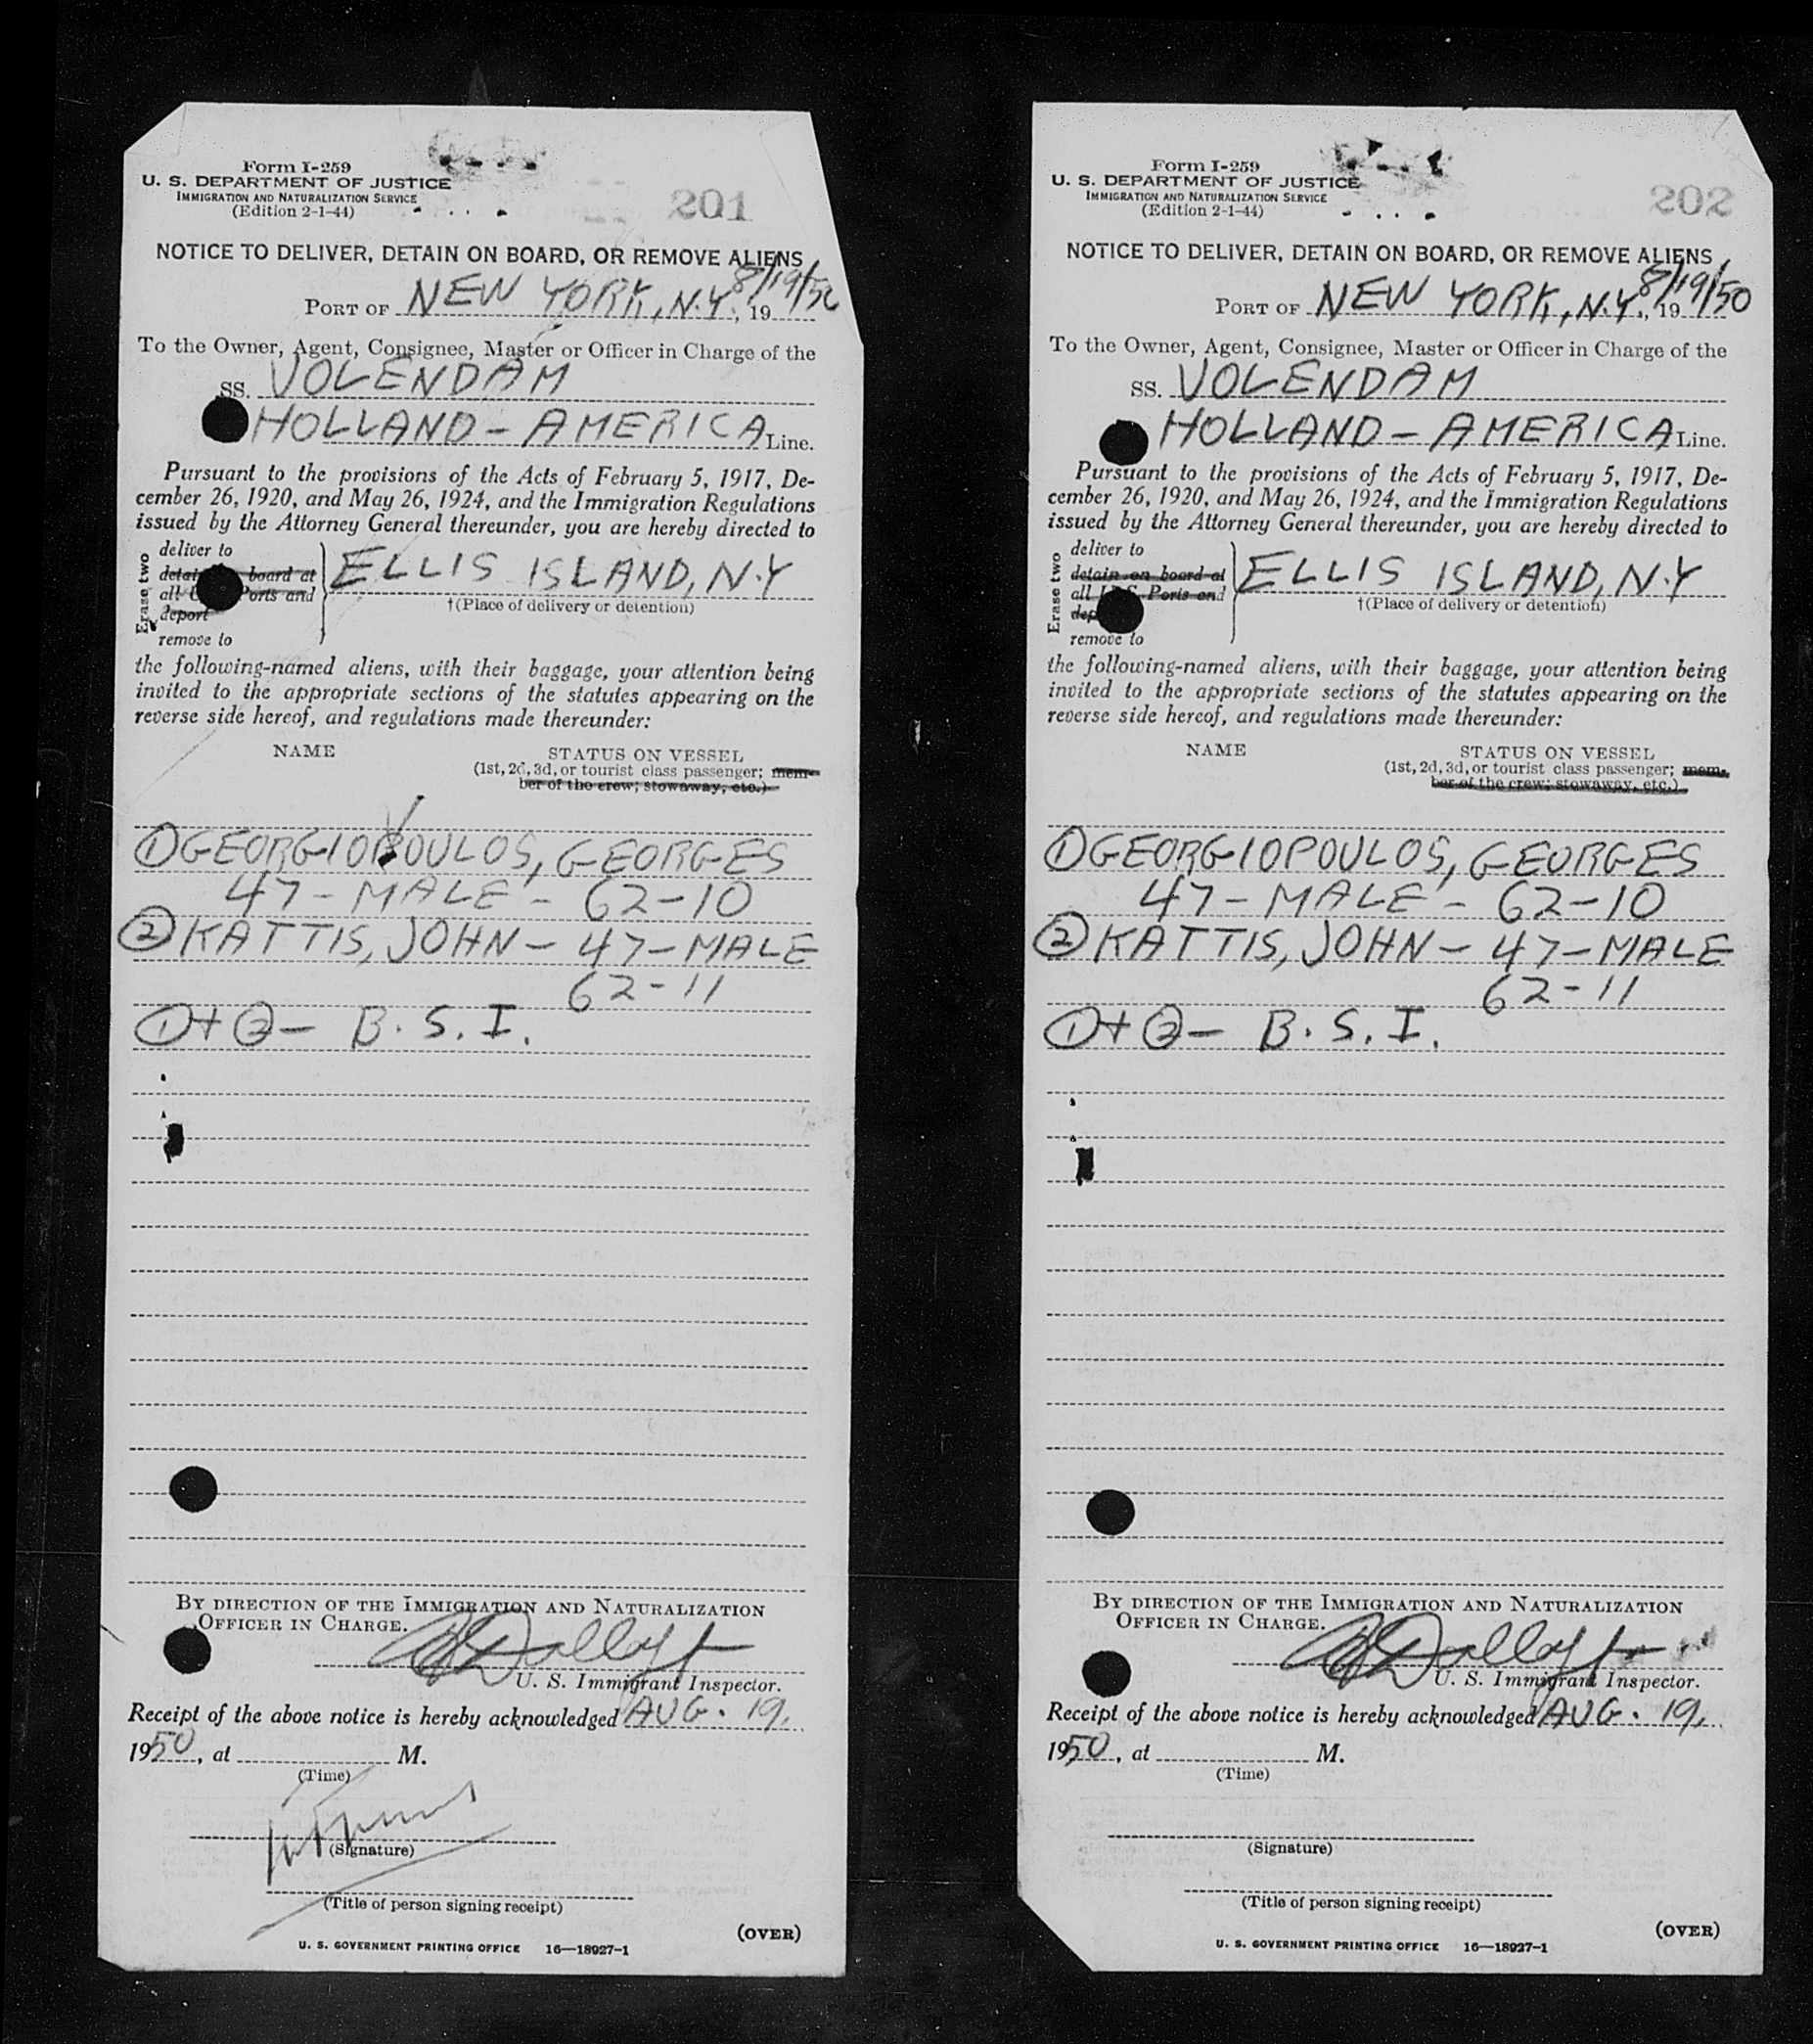 Form I-259
U. S. DEPARTMENT OF JUSTICE
IMMIGRATION AND NATURALIZATION SERVICE
(Edition 2-1-44)
201
NOTICE TO DELIVER, DETAIN ON BOARD, OR REMOVE ALIENS
PORT OF NEW YORK, N.Y., 19 8/19/50
To the Owner, Agent, Consignee, Master or Officer in Charge of the
SS. VOLENDAM
HOLLAND - AMERICA Line.
Pursuant to the provisions of the Acts of February 5, 1917, De-
cember 26, 1920, and May 26, 1924, and the Immigration Regulations
issued by the Attorney General thereunder, you are hereby directed to
Erase two
deliver to
board at
all Ports and
deport
remove to
ELLIS ISLAND, N.Y
†(Place of delivery or detention)
the following-named aliens, with their baggage, your attention being
invited to the appropriate sections of the statutes appearing on the
reverse side hereof, and regulations made thereunder:
NAME
STATUS ON VESSEL
(1st, 2d, 3d, or tourist class passenger; mem-
ber of the crew; stowaway, etc.)
① GEORGIOPOULOS, GEORGES
47 - MALE - 62-10
② KATTIS, JOHN - 47 - MALE
62-11
① + ② - B. S. I.
BY DIRECTION OF THE IMMIGRATION AND NATURALIZATION
OFFICER IN CHARGE.
U. S. Immigrant Inspector.
Receipt of the above notice is hereby acknowledged AUG. 19,
1950, at M.
(Time)
(Signature)
(Title of person signing receipt)
(OVER)
U. S. GOVERNMENT PRINTING OFFICE 16—18927-1
Form I-259
U. S. DEPARTMENT OF JUSTICE
IMMIGRATION AND NATURALIZATION SERVICE
(Edition 2-1-44)
202
NOTICE TO DELIVER, DETAIN ON BOARD, OR REMOVE ALIENS
PORT OF NEW YORK, N.Y., 19 8/19/50
To the Owner, Agent, Consignee, Master or Officer in Charge of the
SS. VOLENDAM
HOLLAND - AMERICA Line.
Pursuant to the provisions of the Acts of February 5, 1917, De-
cember 26, 1920, and May 26, 1924, and the Immigration Regulations
issued by the Attorney General thereunder, you are hereby directed to
Erase two
deliver to
detain on board at
all U. S. Ports and
remove to
ELLIS ISLAND, N.Y
†(Place of delivery or detention)
the following-named aliens, with their baggage, your attention being
invited to the appropriate sections of the statutes appearing on the
reverse side hereof, and regulations made thereunder:
NAME
STATUS ON VESSEL
(1st, 2d, 3d, or tourist class passenger; mem-
ber of the crew; stowaway, etc.)
① GEORGIOPOULOS, GEORGES
47 - MALE - 62-10
② KATTIS, JOHN - 47 - MALE
62-11
① + ② - B. S. I.
BY DIRECTION OF THE IMMIGRATION AND NATURALIZATION
OFFICER IN CHARGE.
U. S. Immigrant Inspector.
Receipt of the above notice is hereby acknowledged AUG. 19,
1950, at M.
(Time)
(Signature)
(Title of person signing receipt)
(OVER)
U. S. GOVERNMENT PRINTING OFFICE 16—18927-1